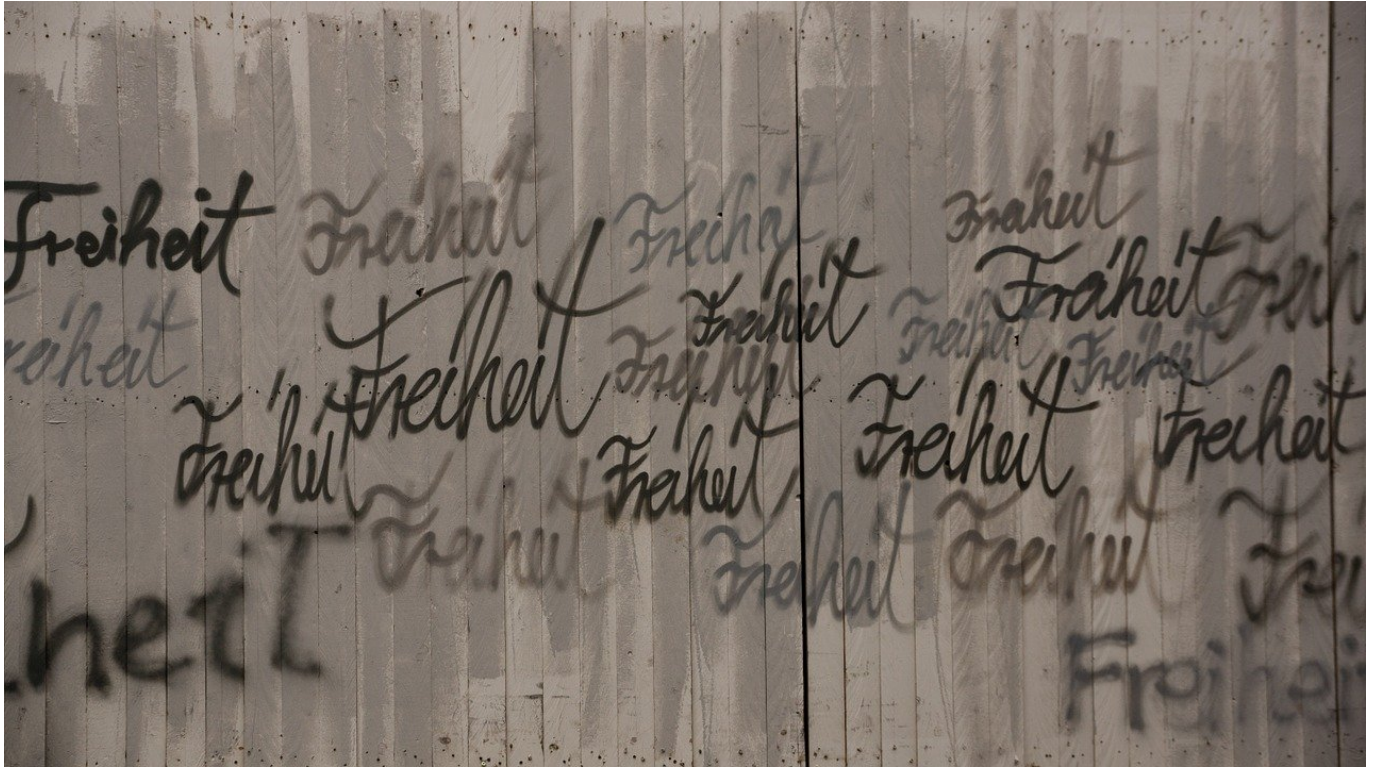 Freiheit
Freiheit
Freiheit
Freiheit
Freiheit
Freiheit
Frei
reiheit
Freiheit
Freiheit
Freiheit
Freiheit
Freiheit
Freiheit
Freiheit
Freiheit
Freiheit
Freiheit
Freiheit
Freiheit
Frei
heit
Freihei